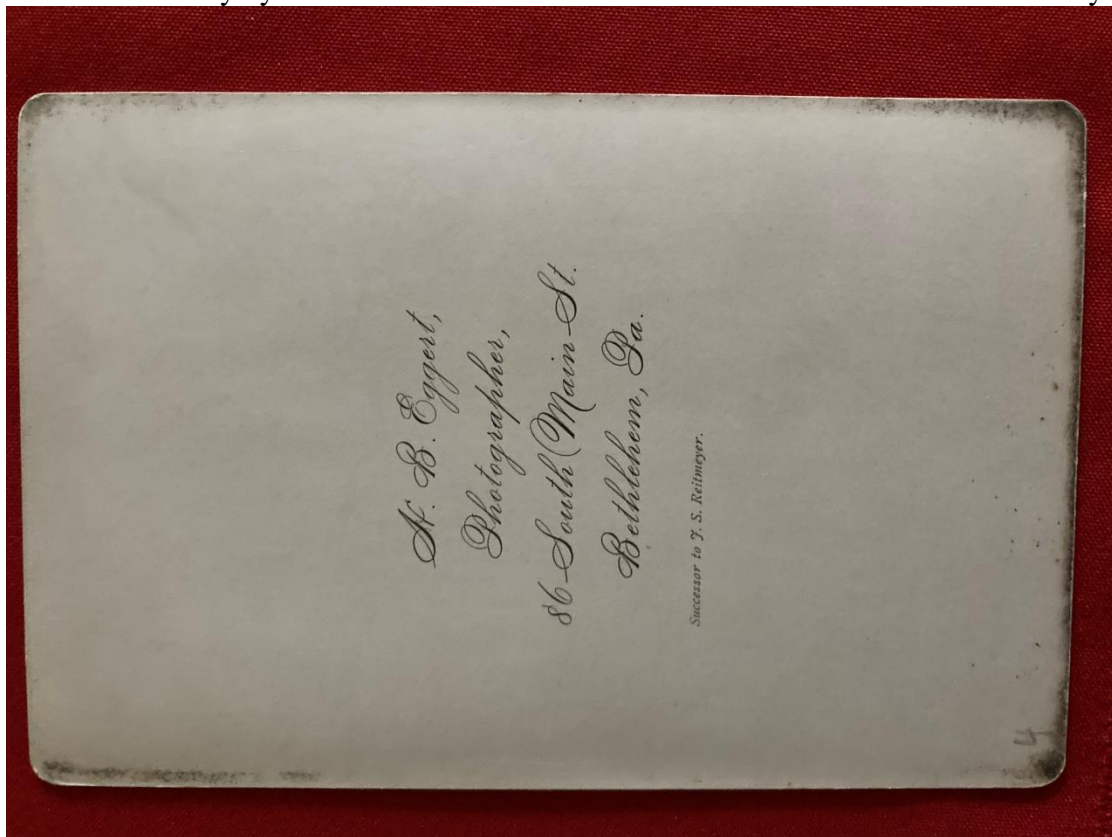 H. B. Eggert,
Photographer,
86 South Main St.
Bethlehem, Pa.
Successor to J. S. Reitmeyer.
4